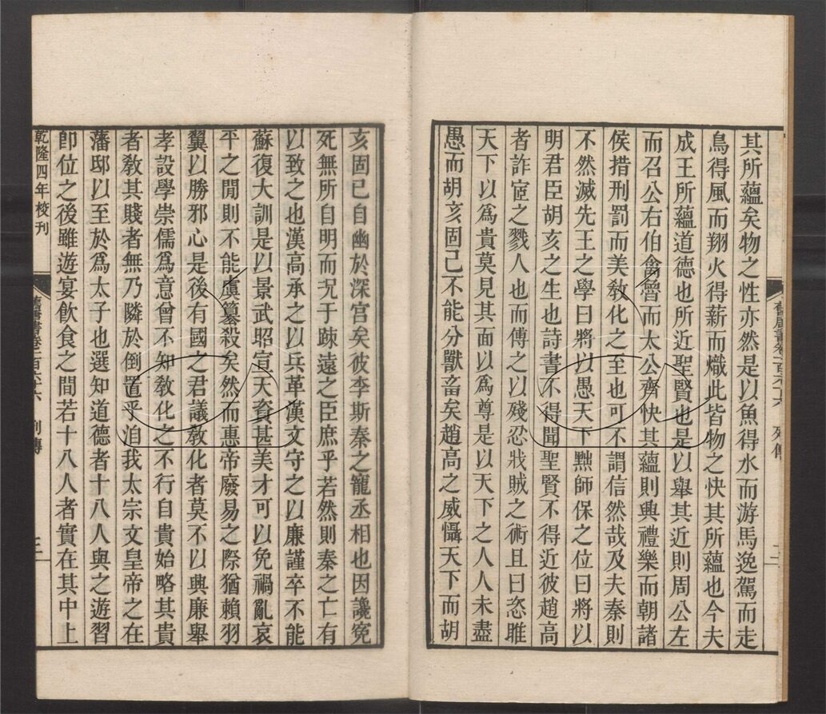 其所蘊矣物之性亦然是以魚得水而游馬逸駕而走
鳥得風而翔火得薪而熾此皆物之快其所蘊也今夫
成王所蘊道德也所近聖賢也是以舉其近則周公左
而召公右伯禽魯而太公齊快其蘊則興禮樂而朝諸
侯措刑罰而美教化之至也可不謂信然哉及夫秦則
不然滅先王之學曰將以愚天下黜師保之位曰將以
明君臣胡亥之生也詩書不得聞聖賢不得近彼趙高
者詐宦之戮人也而傅之以殘忍戕賊之術且曰恣睢
天下以爲貴莫見其面以爲尊是以天下之人人未盡
愚而胡亥固已不能分獸畜矣趙高之威懾天下而胡
舊唐書卷一百六十六 列傳 二
亥固已自幽於深宮矣彼李斯秦之寵丞相也因讒冤
死無所自明而况于疎遠之臣庶乎若然則秦之亡有
以致之也漢高承之以兵革漢文守之以廉謹卒不能
蘇復大訓是以景武昭宣天資甚美才可以免禍亂哀
平之閒則不能虞簒殺矣然而惠帝廢易之際猶賴羽
翼以勝邪心是後有國之君議教化者莫不以興廉舉
孝設學崇儒爲意曾不知教化之不行自貴始略其貴
者教其賤者無乃隣於倒置乎洎我太宗文皇帝之在
藩邸以至於爲太子也選知道德者十八人與之遊習
卽位之後雖遊宴飲食之間若十八人者實在其中上
乾隆四年校刊
舊唐書卷一百六十六 列傳 三